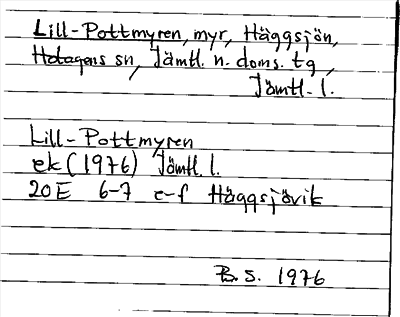 Lill-Pottmyren, myr, Häggsjön,
Hotagens sn, Jämtl. n. doms. tg,
Jämtl. l.
Lill-Pottmyren
ek (1976) Jämtl. l.
20E 6-7 e-f Häggsjövik
B.S. 1976